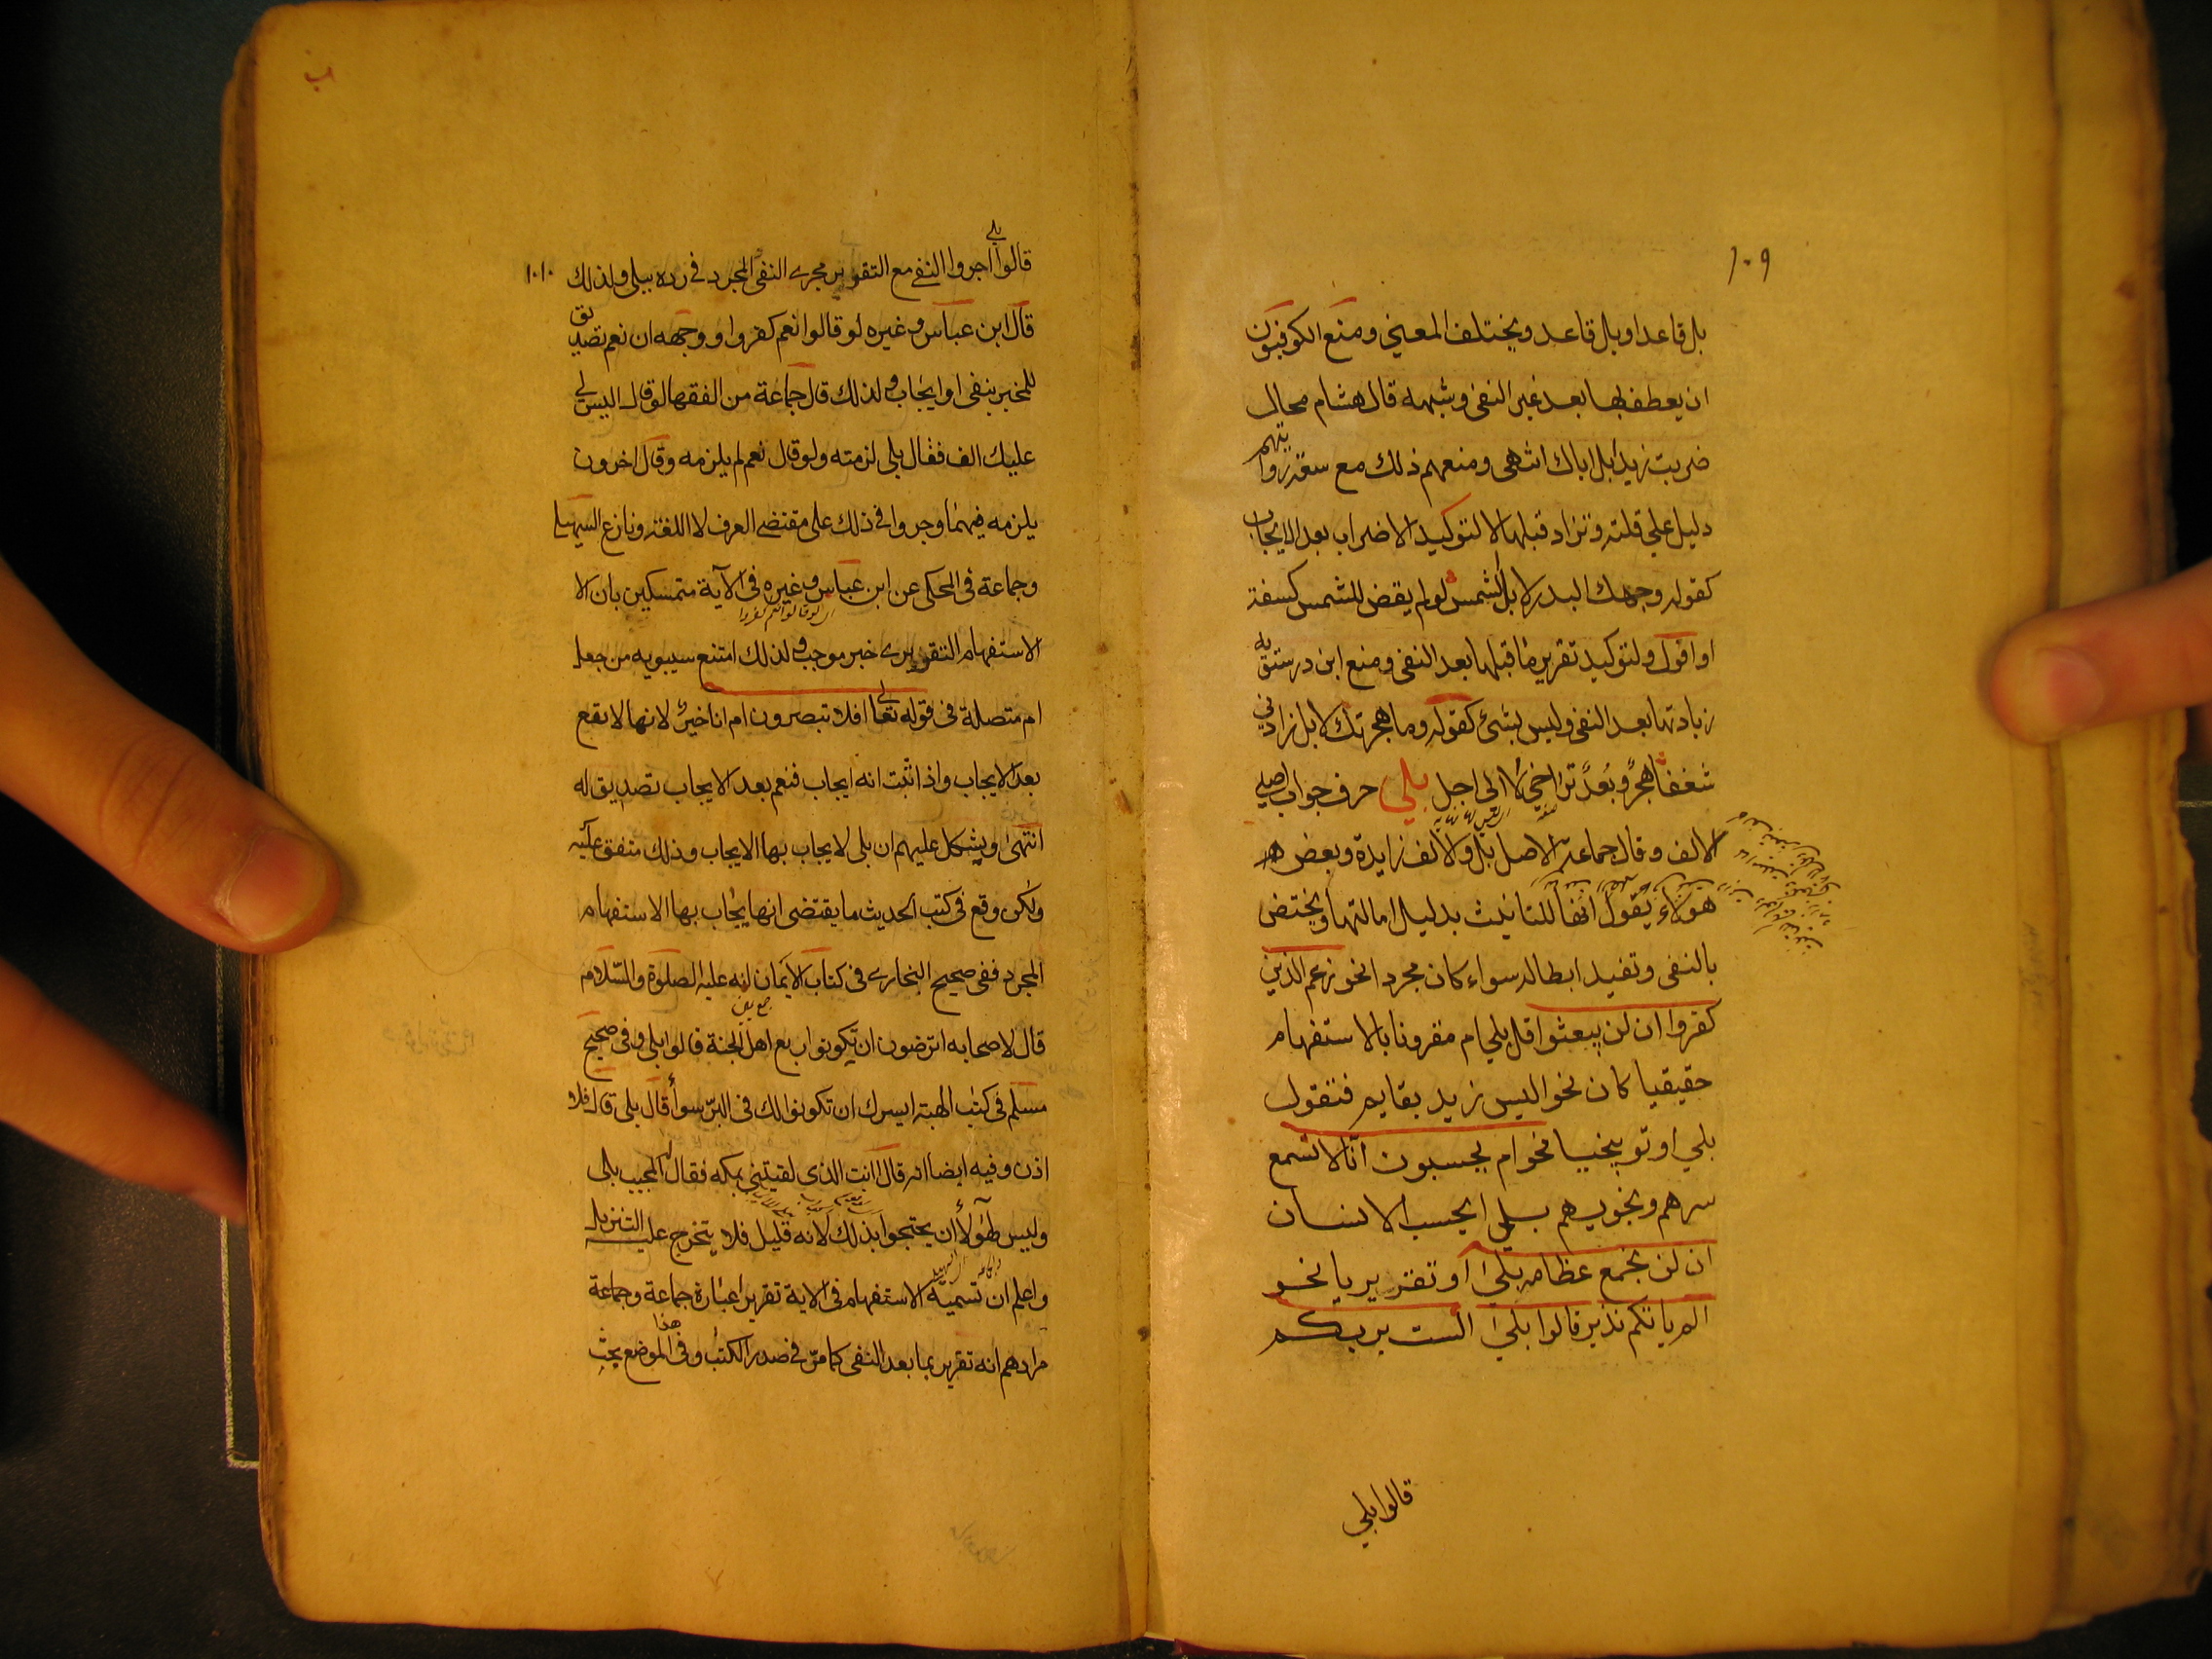 ١٠٩
بل قاعدا او بل قاعد ويختلف المعنى ومنع الكوفيون
ان يعطف بها بعد غير النفى وشبهه قال هشام محال
ضربت زيدا بل اباك انتهى ومنعهم ذلك مع سعة روايتهم
دليل على قلته وتزاد قبلها لا لتوكيد الاضراب بعد الايجاب
كقوله وجهك البدر لا بل الشمس لو لم يقض للشمس كسفة
او افول ولتوكيد تقرير ما قبلها بعد النفى ومنع ابن درستويه
زيادتها بعد النفى وليس بشئ كقوله وما هجرتك لا بل زادنى
شغفا هجر وبعد تراخى لا الى اجل بلى حرف جواب اصلى
الالف وقال جماعة الاصل بل والالف زايدة وبعض
هولاء يقول انها للتانيث بدليل امالتها ويختص
بالنفى وتفيد ابطاله سواء كان مجردا نحو زعم الذين
كفروا ان لن يبعثوا قل بلى ام مقرونا بالاستفهام
حقيقيا كان نحو اليس زيد بقايم فتقول
بلى او توبيخيا نحو ام يحسبون انا لا نسمع
سرهم ونجويهم بلى ايحسب الانسان
ان لن نجمع عظامه بلى او تقريريا نحو
الم ياتكم نذير قالوا بلى الست بربكم
قالوا بلى
قالوا بلى اجروا النفى مع التقرير مجرى النفى المجرد فى رده ببلى ولذلك
قال ابن عباس وغيره لو قالوا نعم كفروا ووجهه ان نعم تصديق
للمخبر بنفى او ايجاب ولذلك قال جماعة من الفقها لو قال اليس لى
عليك الف فقال بلى لزمته ولو قال نعم لم يلزمه وقال اخرون
يلزمه فيهما وجروا فى ذلك على مقتضى العرف لا اللغة ونازع السهيلى
وجماعة فى المحكى عن ابن عباس وغيره فى الآية متمسكين بان الا
الاستفهام التقريرى خبر موجب ولذلك امتنع سيبويه من جعل
ام متصلة فى قوله تعالى افلا تبصرون ام انا خير لانها لا تقع
بعد الايجاب واذا ثبت انه ايجاب فنعم بعد الايجاب تصديق له
انتهى ويشكل عليهم ان بلى لا يجاب بها الايجاب وذلك متفق عليه
ولكن وقع فى كتب الحديث ما يقتضى انها يجاب بها الاستفهام
المجرد ففى صحيح البخارى فى كتاب الايمان انه عليه الصلوة والسلام
قال لاصحابه اترضون ان تكونوا ربع اهل الجنة قالوا بلى وفى صحيح
مسلم فى كتب الهبة ايسرك ان تكونوا لك فى البر سوأ قال بلى قال فلا
اذن وفيه ايضا انه قال انت الذى لقيتنى بمكه فقال له المجيب بلى
وليس لهؤلأ ان يحتجوا بذلك لانه قليل فلا يتخرج عليه التنزيل
واعلم ان تسمية الاستفهام فى الاية تقرير اعبارة جماعة وجماعة
مرادهم انه تقرير بما بعد النفى كما مر فى صدر الكتب وفى هذا الموضع بحث